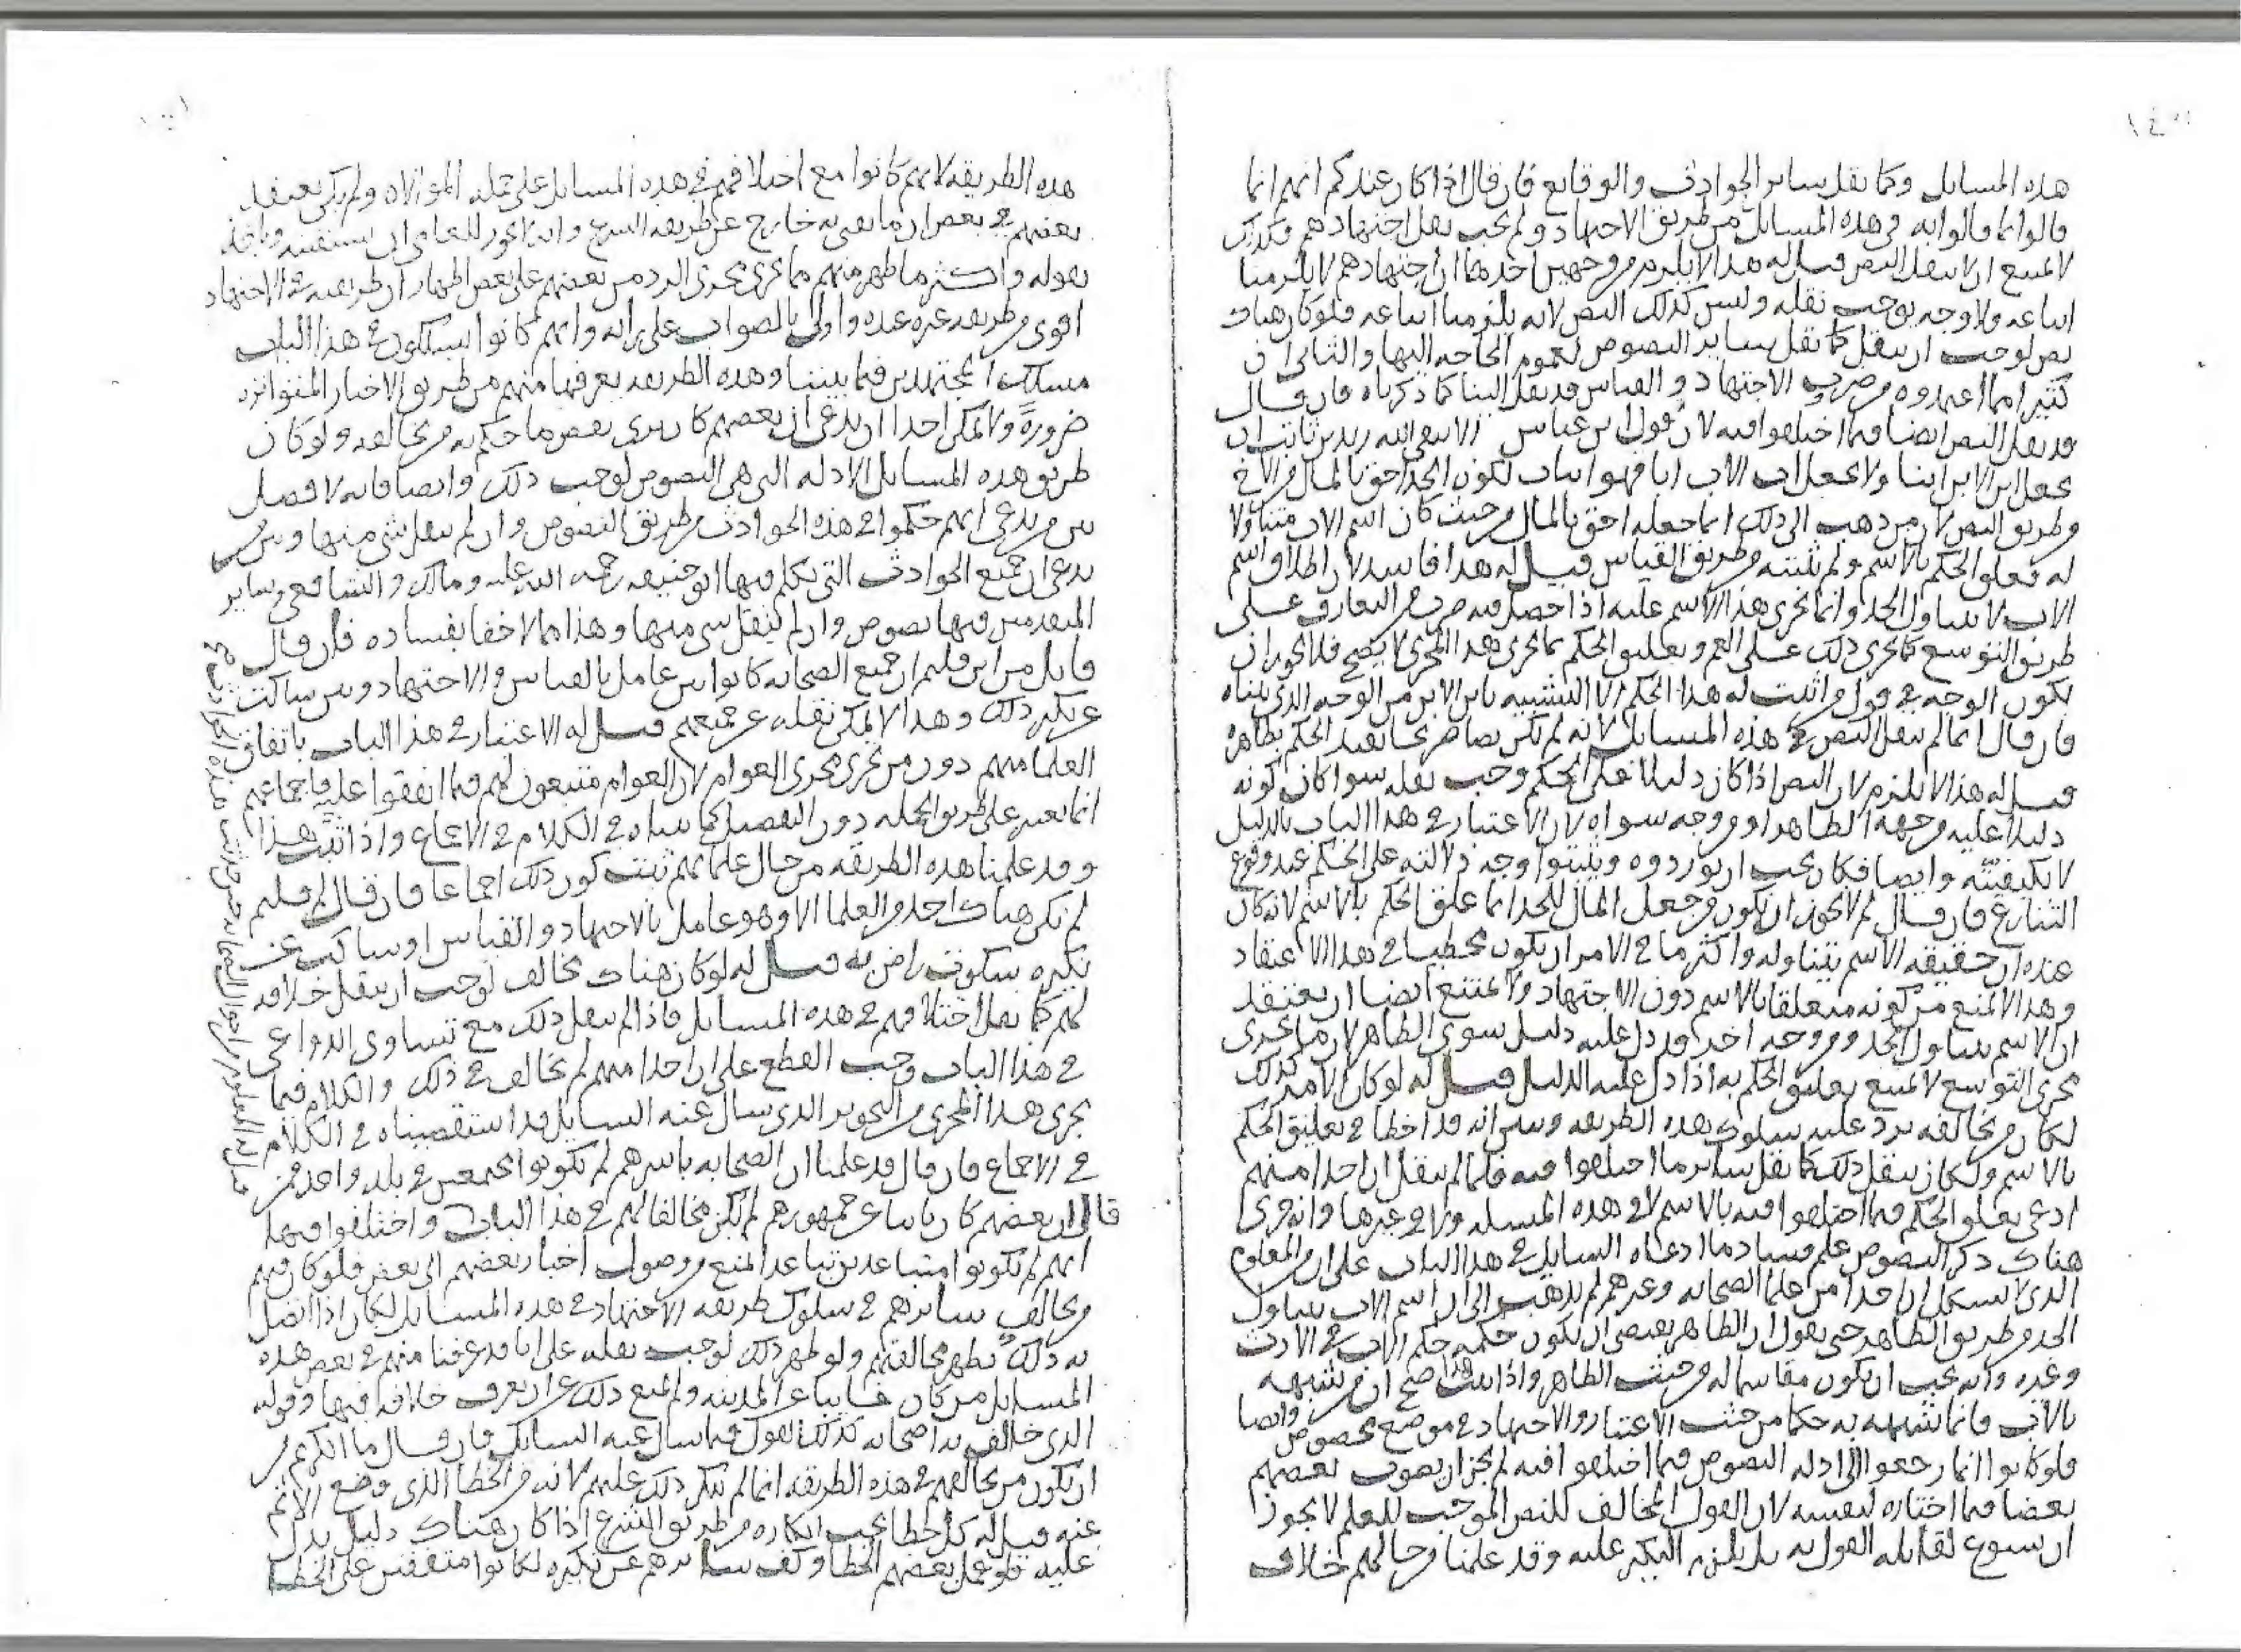 هذه المسايل وكما نقل ساير الحوادث والوقايع فان قال اذا كان عندكم انهم انما
قالوا ما قالوا به في هذه المسايل من طريق الاجتهاد ولم يجب نقل اجتهادهم فكذلك
لا يمتنع ان لا ينقل النص قيل له هذا لا يلزم من وجهين احدهما ان اجتهادهم لا يلزمنا
اتباعه ولا وجه يوجب نقله وليس كذلك النص لانه يلزمنا اتباعه فلو كان هناك
نص لوجب ان ينقل كما نقل ساير النصوص لعموم الحاجة اليها والثاني ان
كثيرا مما اعتمدوه من ضروب الاجتهاد والقياس قد نقل الينا كما ذكرناه فان قال
قد نقل النص ايضا فيما اختلفوا فيه لان قول ابن عباس الا يتقي الله زيد بن ثابت ان
يجعل ابن الابن ابنا ولا يجعل اب الاب ابا فهو اثبات لكون الجد احق بالمال من الاخ
من طريق النص لان من ذهب الى ذلك انما جعله احق بالمال من حيث كان اسم الاب متناولا
له فعلق الحكم بالاسم ولم يثبته من طريق القياس قيل له هذا فاسد لان اطلاق اسم
الاب لا يتناول الجد وانما يجري هذا الاسم عليه اذا حصل فيه ضرب من التعارف على
طريق التوسع كما يجري ذلك على العم وتعليق الحكم بما يجري هذا المجرى لا يصح فلا يجوز ان
يكون الوجه في قول من اثبت له هذا الحكم الا التشبيه بابن الابن من الوجه الذي بيناه
فان قال انما لم ينقل النص في هذه المسايل لانه لم يكن نصا صريحا يفيد الحكم بظاهره
قيل له هذا لا يلزم لان النص اذا كان دليلا على الحكم وجب نقله سوا كان كونه
دليلا عليه من جهة الظاهر او من وجه سواه لان الاعتبار في هذا الباب بالدليل
لا بكيفيته وايضا فكان يجب ان يوردوه ويثبتوا وجه دلالته على الحكم عند وقوع
التنازع فان قال لم لا يجوز ان يكون من جعل المال للجد انما علق الحكم بالاسم لانه كان
عنده ان حقيقة الاسم يتناوله واكثر ما في الامر ان يكون مخطيا في هذا الاعتقاد
وهذا لا يمنع من كونه متعلقا بالاسم دون الاجتهاد ولا يمتنع ايضا ان يعتقد
ان الاسم يتناول الجد من وجه اخر قد دل عليه دليل سوى الظاهر لان ما يجري
مجرى التوسع لا يمتنع تعليق الحكم به اذا دل عليه الدليل قيل له لو كان الامر كذلك
لكان من مخالفه يرد عليه سلوك هذه الطريقه ويبين انه قد اخطا في تعليق الحكم
بالاسم ولكان ينقل ذلك كما نقل ساير ما اختلفوا فيه فلما لم ينقل ان احدا منهم
ادعى تعلق الحكم فيما اختلفوا فيه بالاسم لا في هذه المسله ولا في غيرها وانه جرى
هناك ذكر النصوص علم فساد ما ادعاه السايل في هذا الباب على ان من المعلوم
الذي لا يشكل ان احدا من علما الصحابه وغيرهم لم يذهب الى ان اسم الاب يتناول
الجد من طريق الظاهر حتى يقول ان الظاهر يقتضي ان يكون حكمه حكم الاب في الارث
وغيره وانه يجب ان يكون مقاسما له من حيث الظاهر واذا ثبت هذا صح ان من شبهه
بالاب فانما شبهه به حكما من حيث الاعتبار والاجتهاد في موضع مخصوص وايضا
فلو كانوا انما رجعوا الى ادله النصوص فيما اختلفوا فيه لم يجز ان يصوب بعضهم
بعضا فيما اختاره لنفسه لان القول المخالف للنص الموجب للعلم لا يجوز
ان يسوغ لقايله القول به بل يلزم النكير عليه وقد علمنا من حالهم خلاف
هذه الطريقه لانهم كانوا مع اختلافهم في هذه المسايل على جملة الموالاه ولم يكن يعتقد
بعضهم في بعض ان ما يفتي به خارج عن طريقه الشرع وانه لا يجوز للعامي ان يستفتيه وياخذ
بقوله واكثر ما ظهر منهم مما يجري مجرى الرد من بعضهم على بعض اظهار ان طريقته في الاجتهاد
اقوى من طريقه غيره عنده واولى بالصواب على رايه وانهم كانوا يسلكون في هذا الباب
مسلك المجتهدين فيما بيننا وهذه الطريقه يعرفها منهم من طريق الاخبار المتواتره
ضرورة ولا يمكن احدا ان يدعي ان بعضهم كان يبرى بعض ما حكم به من مخالفه ولو كان
طريق هذه المسايل الادله التي هي النصوص لوجب ذلك وايضا فانه لا فصل
بين من يدعي انهم حكموا في هذه الحوادث من طريق النصوص وان لم ينقل شي منها وبين من
يدعي ان جميع الحوادث التي تكلم فيها ابو حنيفه رحمه الله عليه ومالك والشافعي وساير
المتقدمين فيها نصوص وان لم ينقل شي منها وهذا مما لا خفا بفساده فان قال
قايل من اين قلتم ان جميع الصحابه كانوا بين عامل بالقياس والاجتهاد وبين ساكت
عن نكير ذلك وهذا لا يمكن نقله عن جميعهم قيل له الاعتبار في هذا الباب باتفاق
العلما منهم دون من يجري مجرى العوام لان العوام متبعون لهم فيما اتفقوا عليه فاجماعهم
انما يعتبر على طريق الجمله دون التفصيل كما بيناه في الكلام في الاجماع واذا ثبت هذا
وقد علمنا هذه الطريقه من حال علمايهم ثبت كون ذلك اجماعا فان قال لم قلتم
لم يكن هناك احد من العلما الا وهو عامل بالاجتهاد والقياس او ساكت عن
نكيره سكوت راض به قيل له لو كان هناك مخالف لوجب ان ينقل خلافه
لهم كما نقل اختلافهم في هذه المسايل فاذا لم ينقل ذلك مع تساوي الدواعي
في هذا الباب وجب القطع على ان احدا منهم لم يخالف في ذلك والكلام فيما
يجري هذا المجرى من التجويز الذي سال عنه السايل قد استقصيناه في الكلام
في الاجماع فان قال قد علمنا ان الصحابه باسرهم لم يكونوا مجتمعين في بلد واحد فمن
قال ان بعضهم كان نايبا عن جمهورهم لم يكن مخالفا لهم في هذا الباب واختلفوا فيها
انهم لم يكونوا متباعدين تباعدا يمنع من وصول اخبار بعضهم الى بعض فلو كان فيهم
من يخالف سايرهم في سلوك طريقه الاجتهاد في هذه المسايل لكان اذا اتصل
به ذلك يظهر مخالفتهم ولو ظهر ذلك لوجب نقله على انا قد عرفنا منهم في بعض هذه
المسايل من كان غايبا عن المدينه ولم يمنع ذلك من ان يعرف خلافه فيها وقوله
الذي خالف به اصحابه فكذلك القول فيما سال عنه السايل فان قال ما انكرتم من
ان يكون من يخالفهم في هذه الطريقه انما لم ينكر ذلك عليهم لانه من الخطا الذي وضع الاثم
عنه قيل له كل خطا يجب انكاره من طريق الشرع اذا كان هناك دليل يدل
عليه فلو عمل بعضهم الخطا وكف سايرهم عن نكيره لكانوا متفقين على الخطا